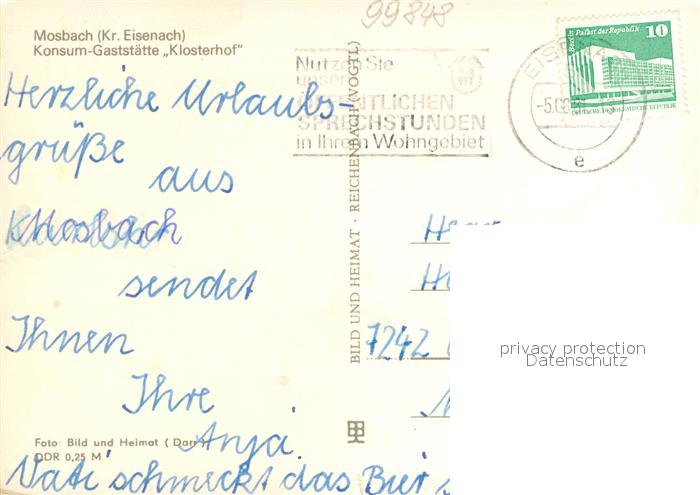 99848
Mosbach (Kr. Eisenach)
Konsum-Gaststätte „Klosterhof"
Nutzen Sie
unsere
ÖFFENTLICHEN
SPRECHSTUNDEN
in Ihrem Wohngebiet
EISENA
-5.
e
Berlin Palast der Republik
10
DEUTSCHE DEMOKRATISCHE REPUBLIK
Herzliche Urlaubs-
grüße
aus
Mosbach
sendet
Ihnen
Ihre
Anja.
Vati schmeckt das Bier
BILD UND HEIMAT · REICHENBACH (VOGTL)
7242
privacy protection
Datenschutz
Foto: Bild und Heimat (Darr)
DDR 0,25 M